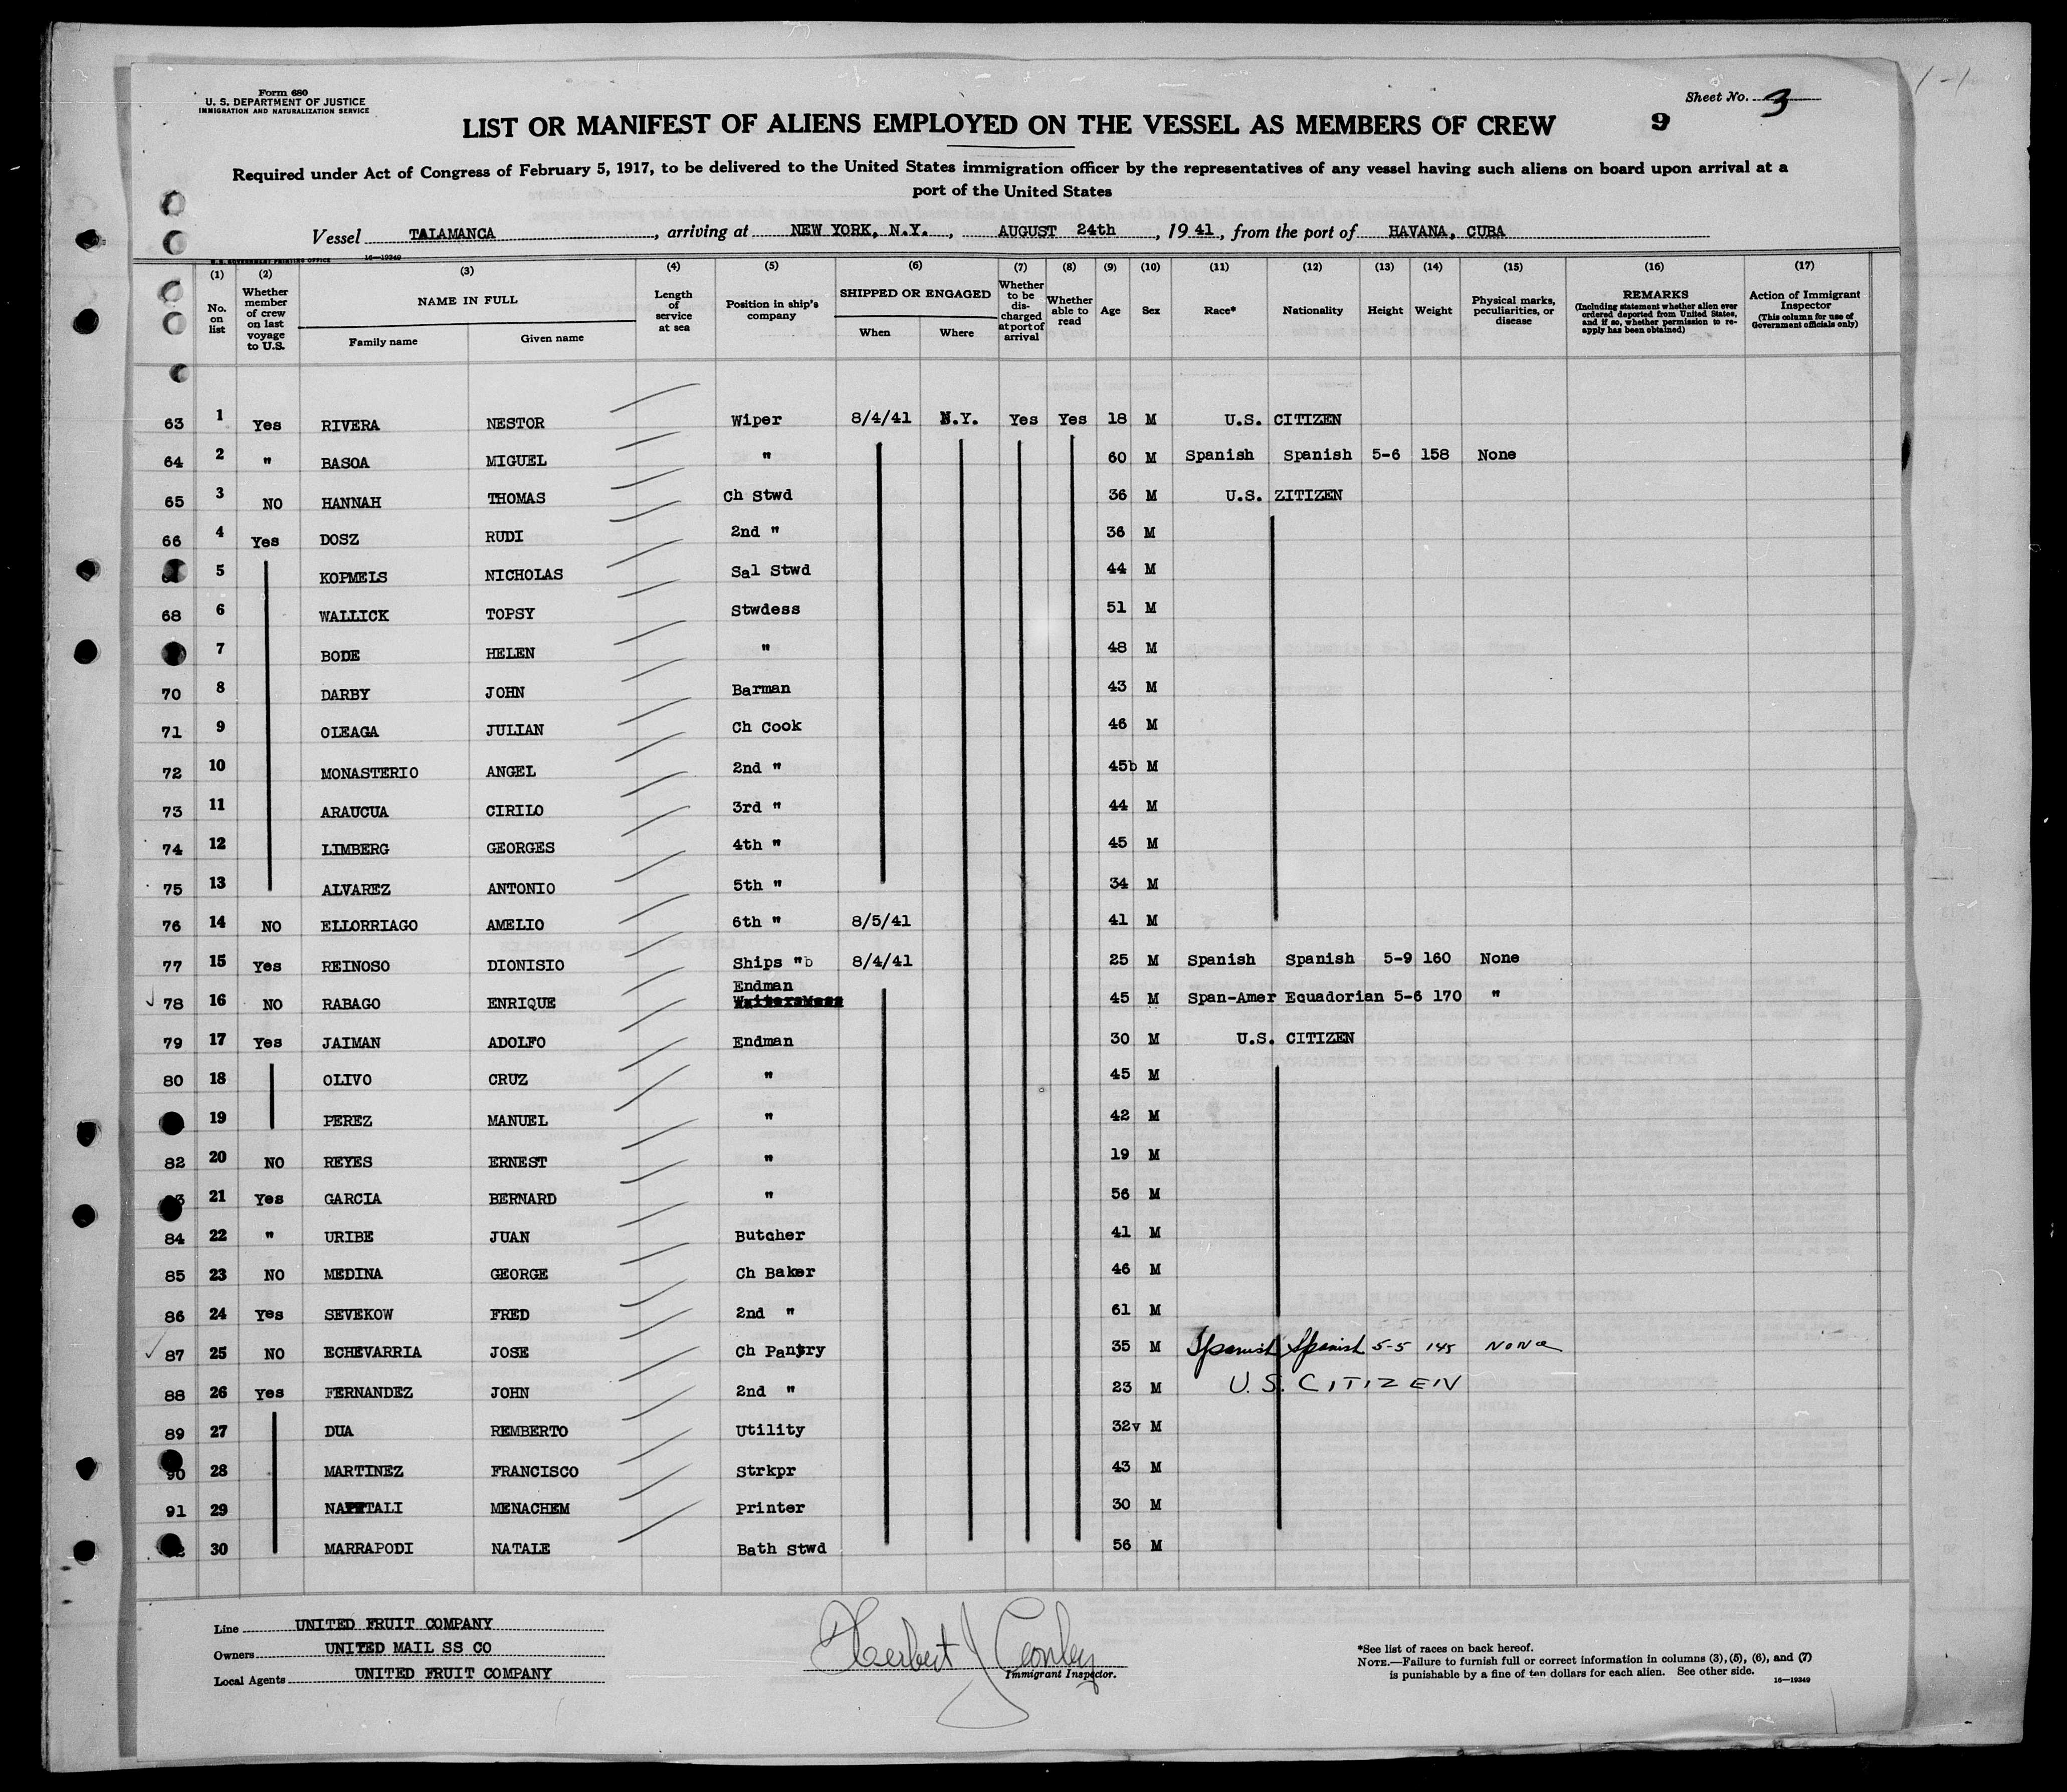 Form 680
U. S. DEPARTMENT OF JUSTICE
IMMIGRATION AND NATURALIZATION SERVICE
Sheet No. 3
LIST OR MANIFEST OF ALIENS EMPLOYED ON THE VESSEL AS MEMBERS OF CREW 9
Required under Act of Congress of February 5, 1917, to be delivered to the United States immigration officer by the representatives of any vessel having such aliens on board upon arrival at a
port of the United States
Vessel TALAMANCA, arriving at NEW YORK, N.Y., AUGUST 24th, 1941, from the port of HAVANA, CUBA
U.S. GOVERNMENT PRINTING OFFICE 16—19349
(1) (2) (3) (4) (5) (6) (7) (8) (9) (10) (11) (12) (13) (14) (15) (16) (17)
No. on list
Whether member of crew on last voyage to U.S.
NAME IN FULL
Family name
Given name
Length of service at sea
Position in ship's company
SHIPPED OR ENGAGED
When
Where
Whether to be discharged at port of arrival
Whether able to read
Age
Sex
Race*
Nationality
Height
Weight
Physical marks, peculiarities, or disease
REMARKS
(Including statement whether alien ever ordered deported from United States, and if so, whether permission to reapply has been obtained)
Action of Immigrant Inspector
(This column for use of Government officials only)
63 1 Yes RIVERA NESTOR Wiper 8/4/41 N.Y. Yes Yes 18 M U.S. CITIZEN
64 2 " BASOA MIGUEL " 60 M Spanish Spanish 5-6 158 None
65 3 NO HANNAH THOMAS Ch Stwd 36 M U.S. ZITIZEN
66 4 Yes DOSZ RUDI 2nd " 36 M
5 KOPMELS NICHOLAS Sal Stwd 44 M
68 6 WALLICK TOPSY Stwdess 51 M
7 BODE HELEN " 48 M
70 8 DARBY JOHN Barman 43 M
71 9 OLEAGA JULIAN Ch Cook 46 M
72 10 MONASTERIO ANGEL 2nd " 45b M
73 11 ARAUCUA CIRILO 3rd " 44 M
74 12 LIMBERG GEORGES 4th " 45 M
75 13 ALVAREZ ANTONIO 5th " 34 M
76 14 NO ELLORRIAGO AMELIO 6th " 8/5/41 41 M
77 15 Yes REINOSO DIONISIO Ships "b 8/4/41 25 M Spanish Spanish 5-9 160 None
78 16 NO RABAGO ENRIQUE Endman WaitersMess 45 M Span-Amer Equadorian 5-6 170 "
79 17 Yes JAIMAN ADOLFO Endman 30 M U.S. CITIZEN
80 18 OLIVO CRUZ " 45 M
19 PEREZ MANUEL " 42 M
82 20 NO REYES ERNEST " 19 M
21 Yes GARCIA BERNARD " 56 M
84 22 " URIBE JUAN Butcher 41 M
85 23 NO MEDINA GEORGE Ch Baker 46 M
86 24 Yes SEVEKOW FRED 2nd " 61 M
87 25 NO ECHEVARRIA JOSE Ch Pantry 35 M Spanish Spanish 5-5 145 NONE
88 26 Yes FERNANDEZ JOHN 2nd " 23 M U.S. CITIZEN
89 27 DUA REMBERTO Utility 32v M
90 28 MARTINEZ FRANCISCO Strkpr 43 M
91 29 NAFTALI MENACHEM Printer 30 M
30 MARRAPODI NATALE Bath Stwd 56 M
Line UNITED FRUIT COMPANY
Owners UNITED MAIL SS CO
Local Agents UNITED FRUIT COMPANY
Herbert J Conley
Immigrant Inspector.
*See list of races on back hereof.
NOTE.—Failure to furnish full or correct information in columns (3), (5), (6), and (7)
is punishable by a fine of ten dollars for each alien. See other side.
16—19349